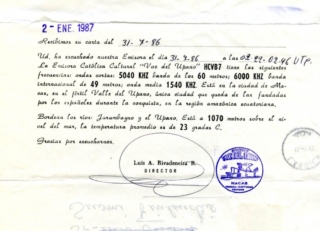 2 - ENE. 1987
Recibimos su carta del 31-7-86
Ud. ha escuchado nuestra Emisora el día 31-7-86 a las 02.22-02.46 UTC.
La Emisora Católica Cultural "Voz del Upano" HCVB7 tiene las siguientes
frecuencias: ondas cortas: 5040 KHZ banda de los 60 metros; 6000 KHZ banda
internacional de 49 metros; onda media 1540 KHZ. Está en la ciudad de Ma-
cas, en el fértil Valle del Upano, única ciudad que queda de las fundadas
por los españoles durante la conquista, en la región amazónica ecuatoriana.
Bordean los ríos: Jurumbayno y el Upano. Está a 1070 metros sobre el ni-
vel del mar, la temperatura promedio es de 23 grados C.
Gracias por escucharnos.
Luis A. Rivadeneira B.
DIRECTOR
MACAS